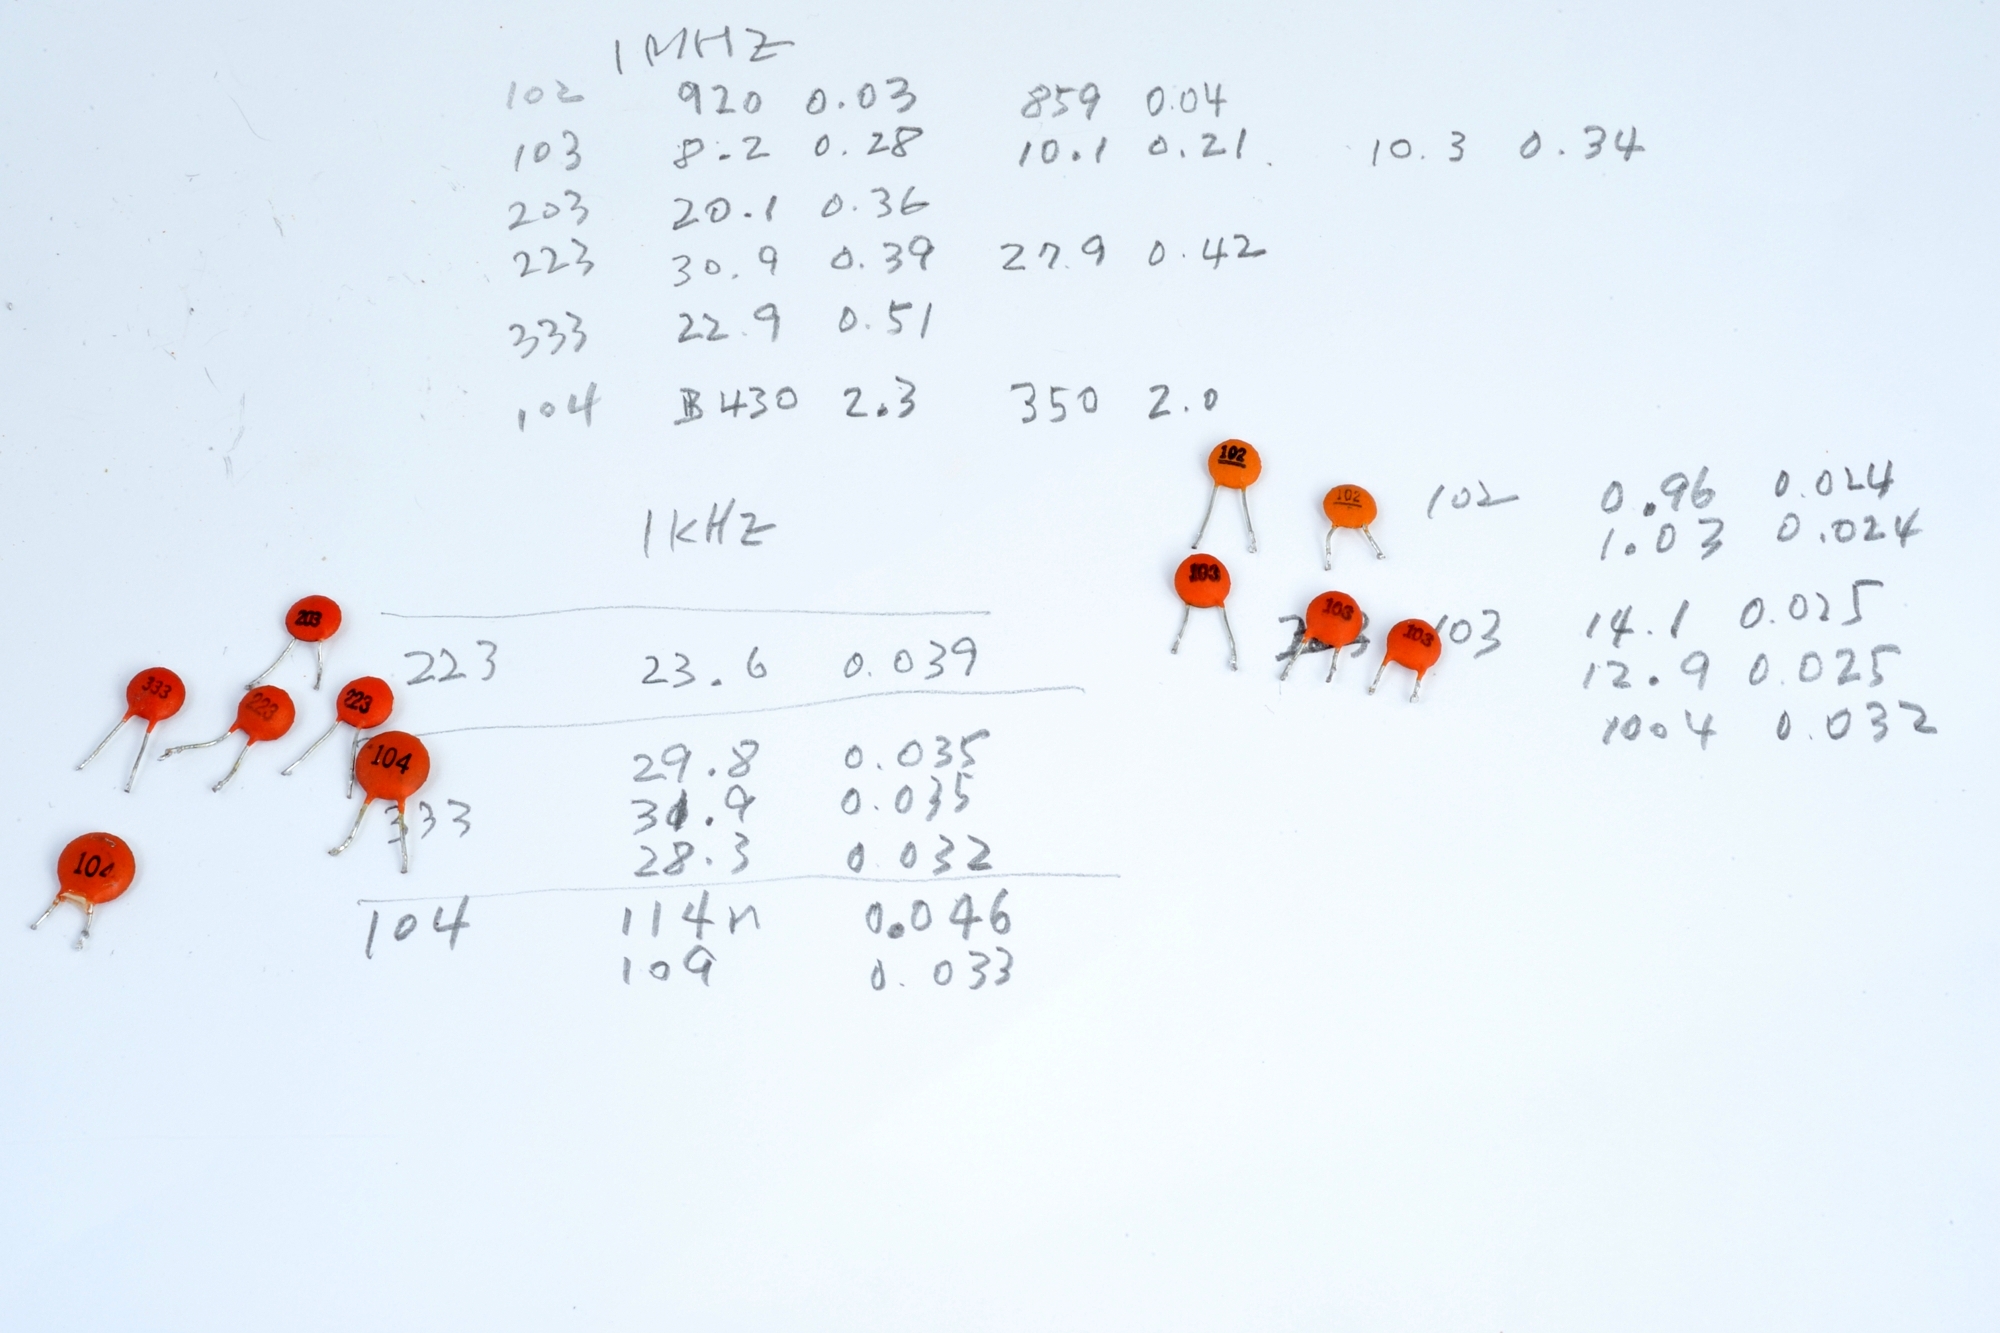 1MHZ
102 920 0.03 859 0.04
103 8.2 0.28 10.1 0.21 10.3 0.34
203 20.1 0.36
223 30.9 0.39 27.9 0.42
333 22.9 0.51
104 430 2.3 350 2.0
1KHZ
223 23.6 0.039
29.8 0.035
333 31.9 0.035
28.3 0.032
104 114n 0.046
109 0.033
102 0.96 0.024
1.03 0.024
103 14.1 0.025
12.9 0.025
10.4 0.032
102
102
103
103
103
203
333
223
223
104
104